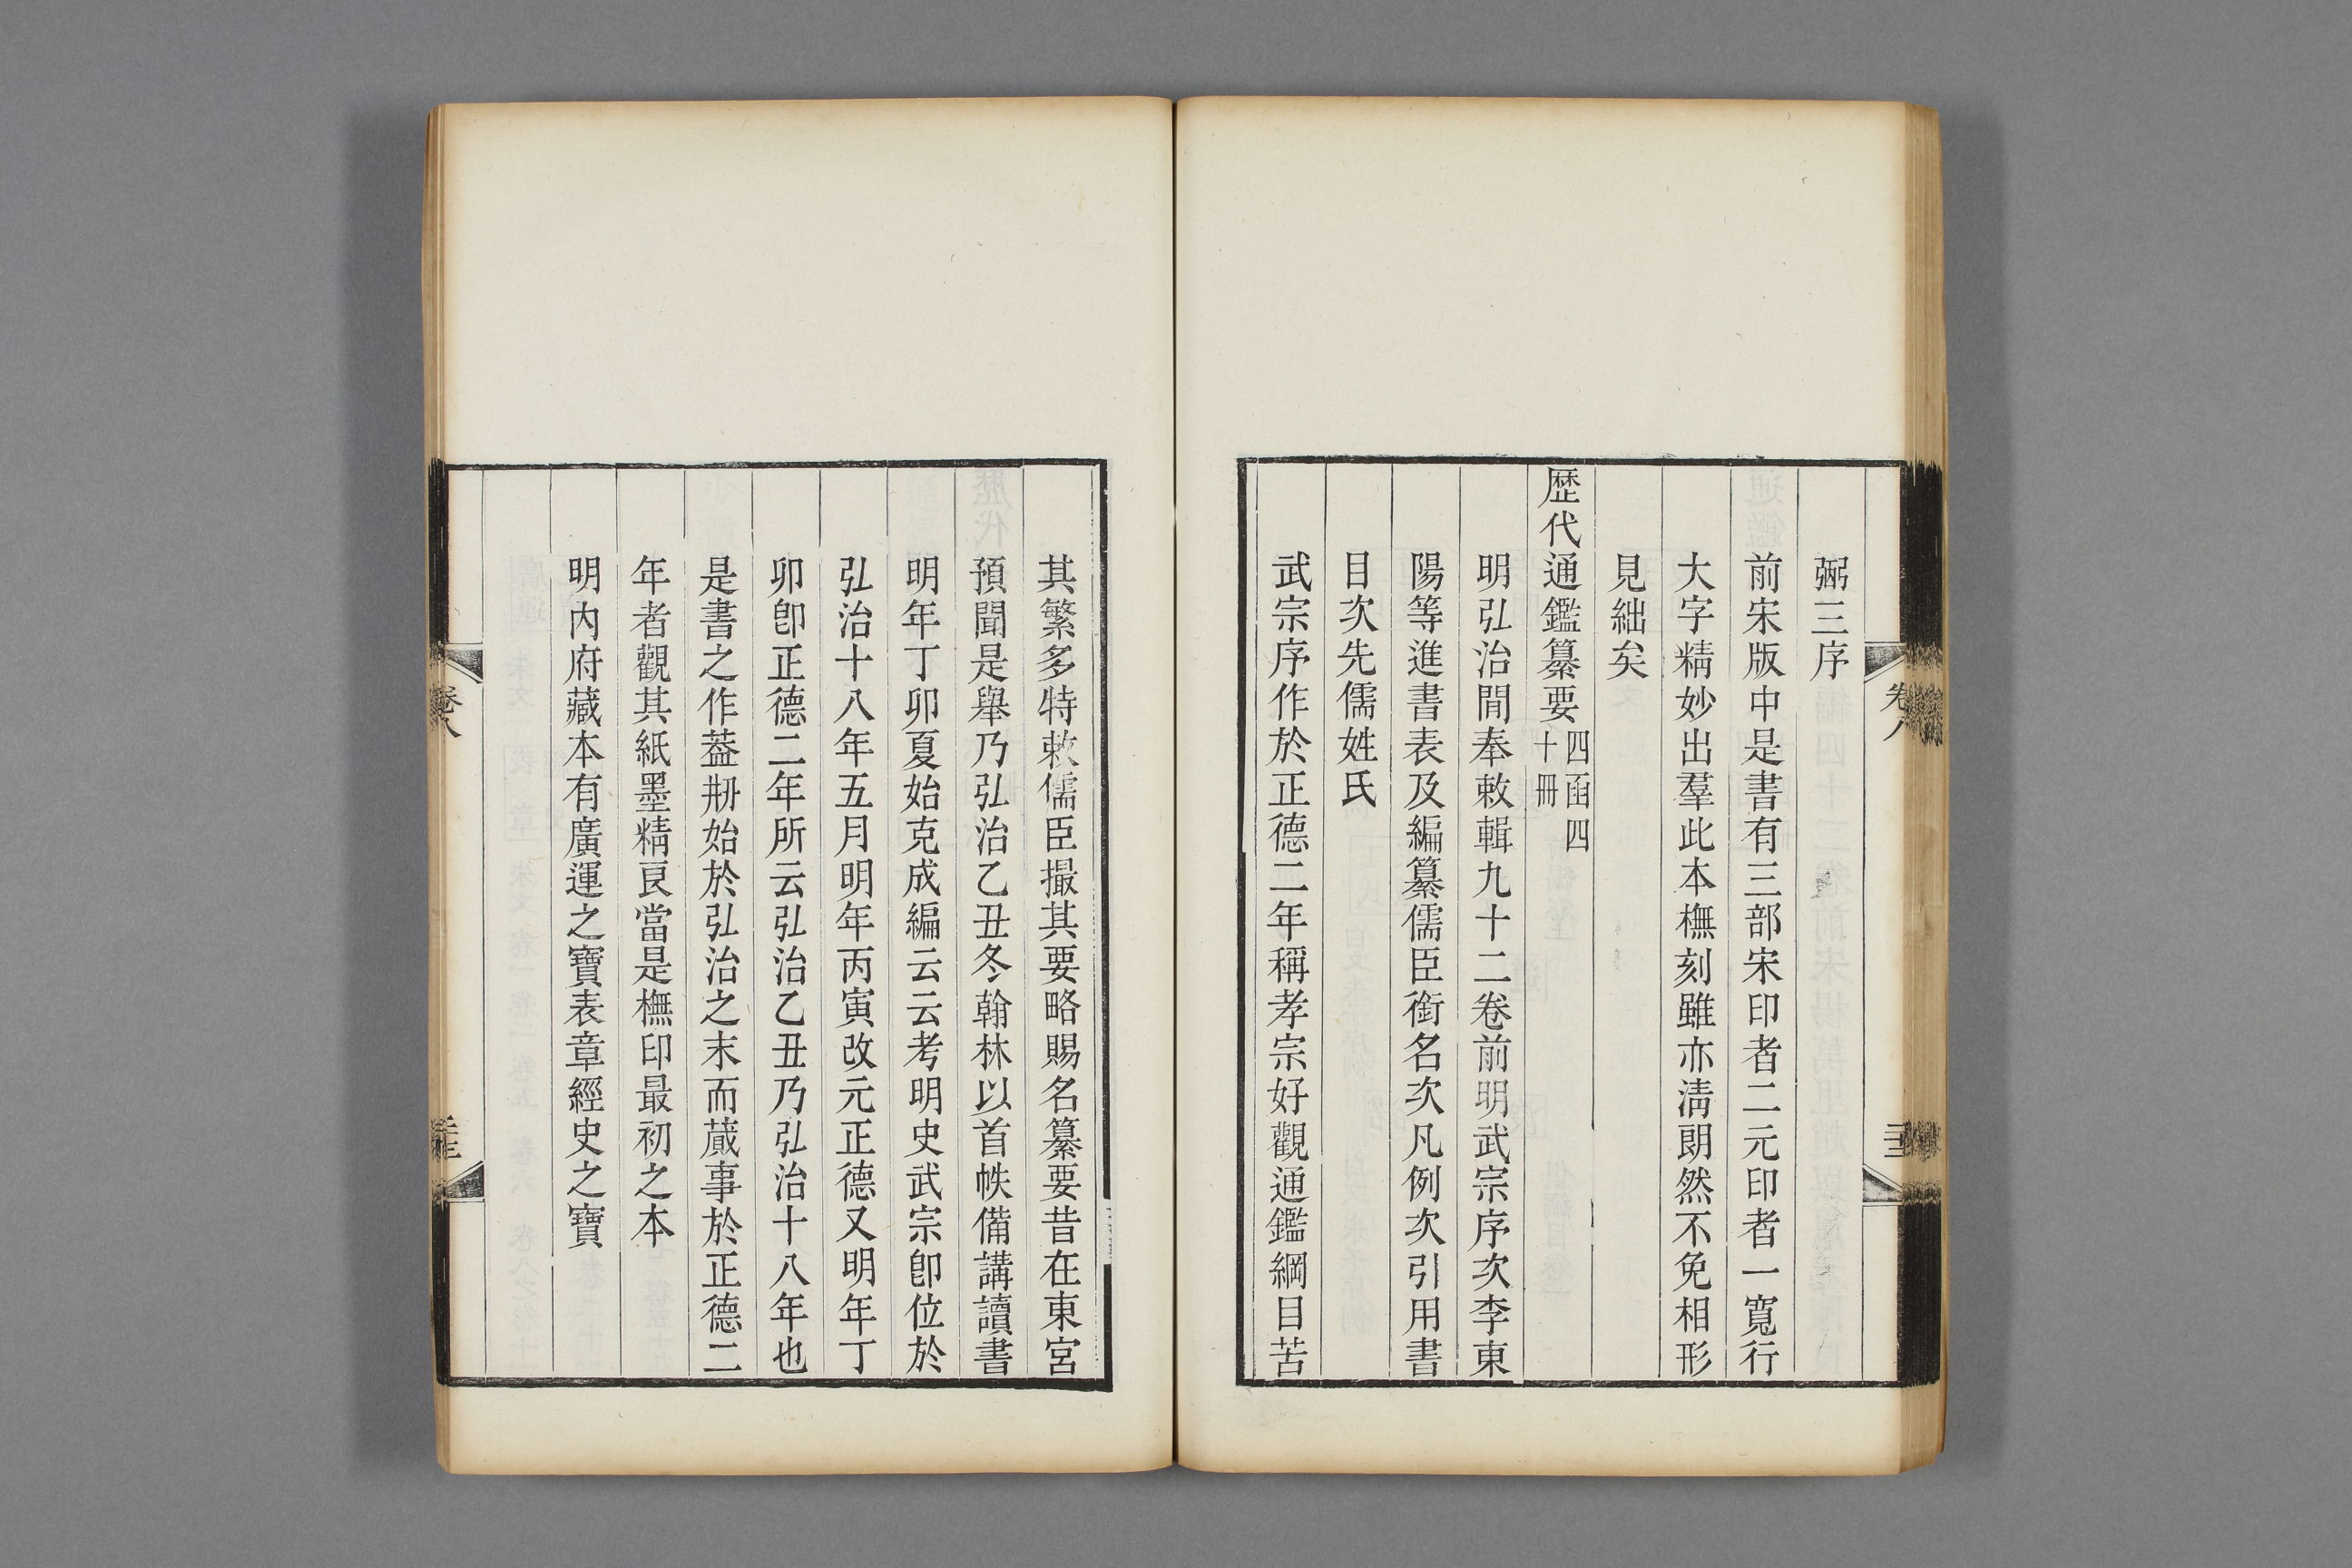 弼三序
前宋版中是書有三部宋印者二元印者一寬行
大字精妙出羣此本橅刻雖亦淸朗然不免相形
見絀矣
歷代通鑑纂要四函四
十冊
明弘治閒奉敕輯九十二卷前明武宗序次李東
陽等進書表及編纂儒臣銜名次凡例次引用書
目次先儒姓氏
武宗序作於正德二年稱孝宗好觀通鑑綱目苦
卷八
其繁多特敕儒臣撮其要略賜名纂要昔在東宮
預聞是舉乃弘治乙丑冬翰林以首帙備講讀書
明年丁卯夏始克成編云云考明史武宗卽位於
弘治十八年五月明年丙寅改元正德又明年丁
卯卽正德二年所云弘治乙丑乃弘治十八年也
是書之作葢刱始於弘治之末而蕆事於正德二
年者觀其紙墨精良當是橅印最初之本
明內府藏本有廣運之寶表章經史之寶
卷八